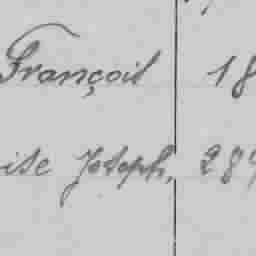 François 18
ise Joseph, 289